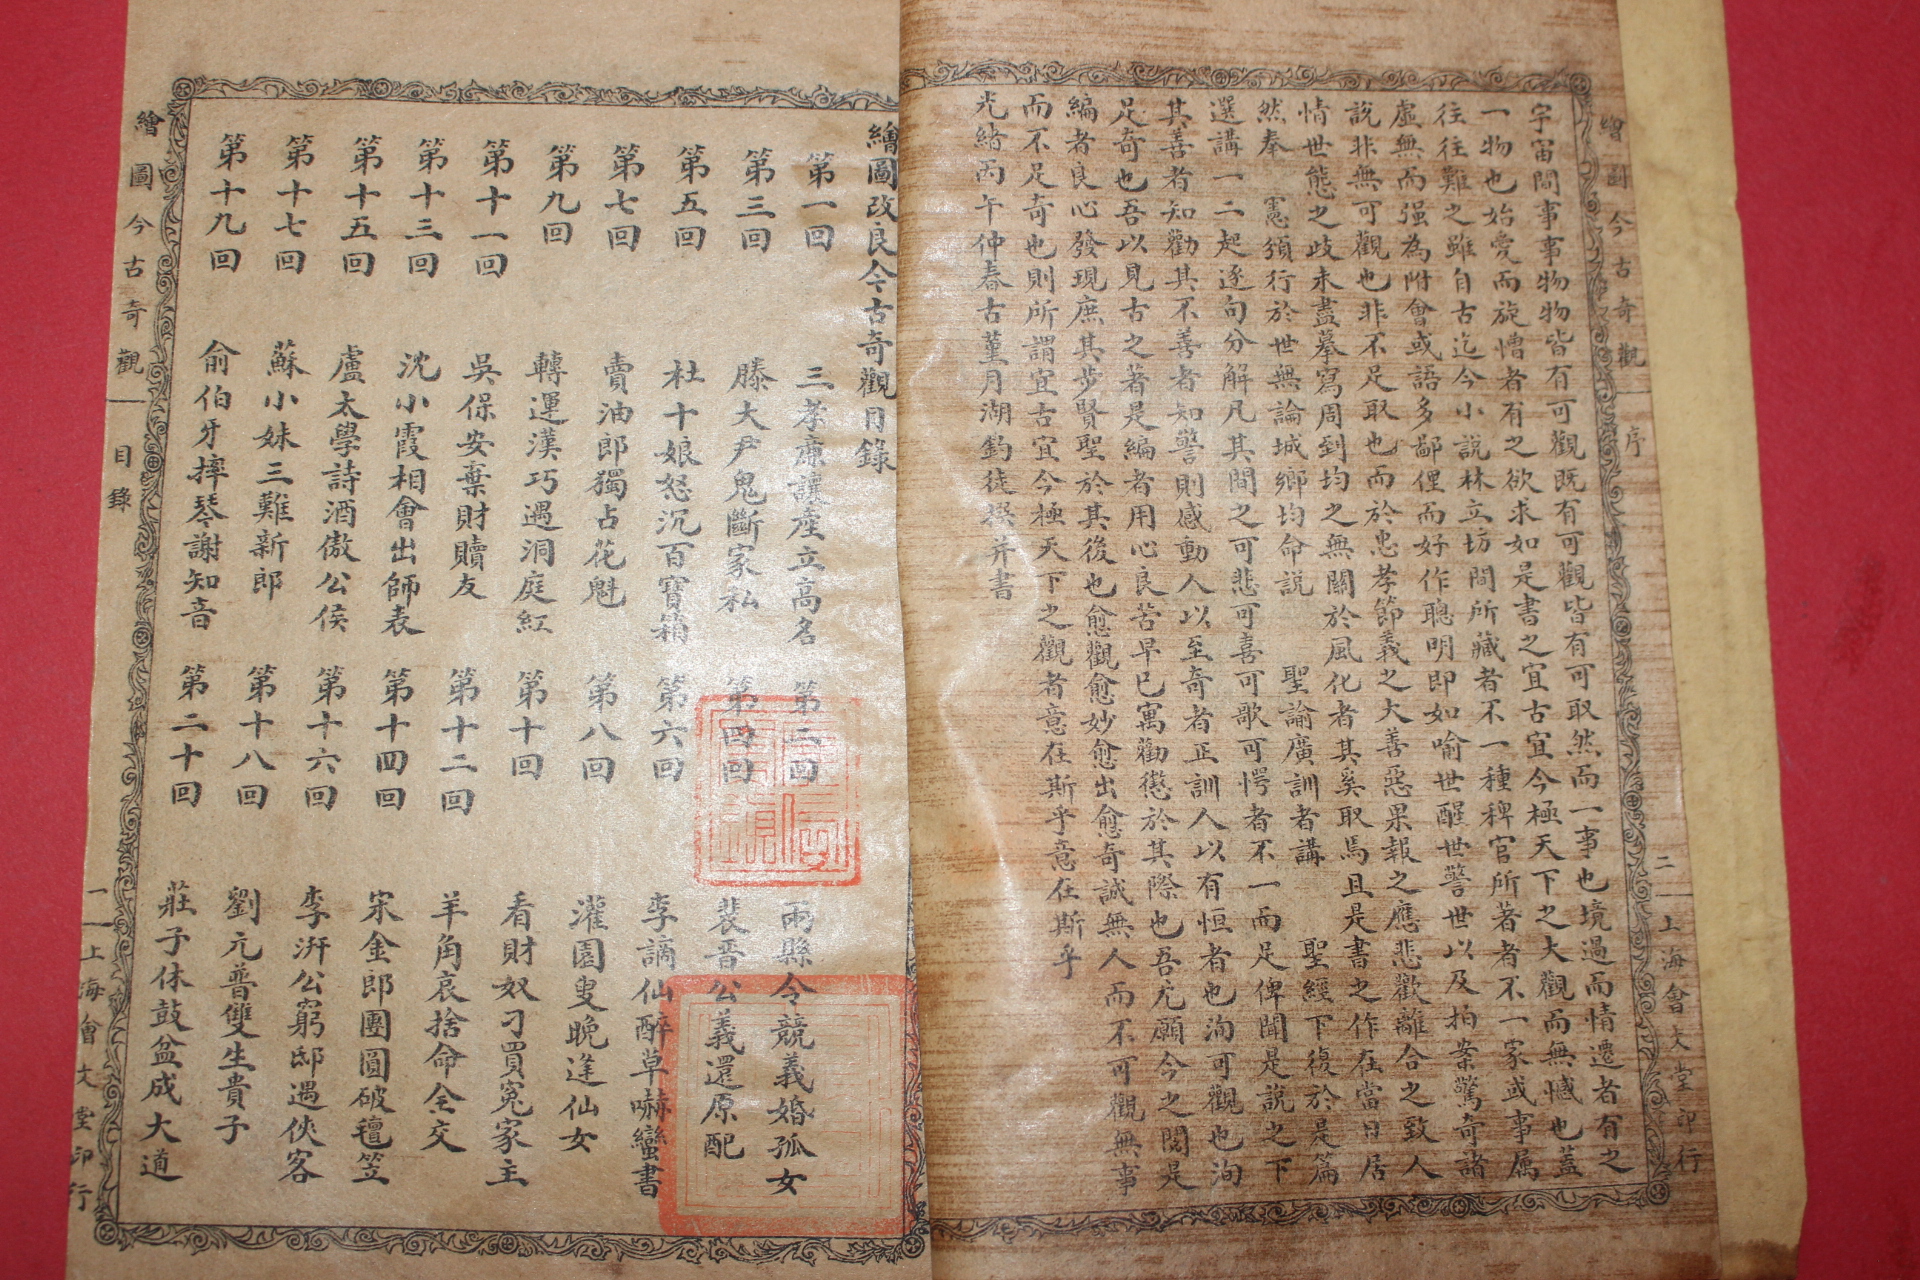 繪圖今古奇觀 序 二 上海會文堂印行
宇宙間事事物物皆有可觀既有可觀皆有可取然而一事也境過而情遷者有之
一物也始愛而旋憎者有之欲求如是書之宜古宜今極天下之大觀而無憾也蓋
往往難之雖自古迄今小說林立坊間所藏者不一種稗官所著者不一家或事屬
虛無而强為附會或語多鄙俚而好作聰明即如喻世醒世警世以及拍案驚奇諸
說非無可觀也非不足取也而於忠孝節義之大善惡果報之應悲歡離合之致人
情世態之歧未盡摹寫周到均之無關於風化者其奚取焉且是書之作在當日居
然奉 憲頒行於世無論城鄉均命説 聖諭廣訓者講 聖經下復於是篇
選講一二起逐句分解凡其間之可悲可喜可歌可愕者不一而足俾聞是説之下
其善者知勸其不善者知警則感動人以至奇者正訓人以有恒者也洵可觀也洵
足奇也吾以見古之著是編者用心良苦早已寓勸懲於其際也吾尤願今之閱是
編者良心發現庶其步賢聖於其後也愈觀愈妙愈出愈奇誠無人而不可觀無事
而不足奇也則所謂宜古宜今極天下之觀者意在斯乎意在斯乎
光緒丙午仲春古堇月湖釣徒撰并書
繪圖改良今古奇觀目錄
第一回 三孝廉讓產立高名 第二回 兩縣令競義婚孤女
第三回 滕大尹鬼斷家私 第四回 裴晋公義還原配
第五回 杜十娘怒沉百寶箱 第六回 李謫仙醉草嚇蠻書
第七回 賣油郎獨占花魁 第八回 灌園叟晚逢仙女
第九回 轉運漢巧遇洞庭紅 第十回 看財奴刁買冤家主
第十一回 吳保安棄財贖友 第十二回 羊角哀捨命全交
第十三回 沈小霞相會出師表 第十四回 宋金郎團圓破氊笠
第十五回 盧太學詩酒傲公侯 第十六回 李汧公窮邸遇俠客
第十七回 蘇小妹三難新郎 第十八回 劉元普雙生貴子
第十九回 俞伯牙摔琴謝知音 第二十回 莊子休鼓盆成大道
繪圖今古奇觀 目錄 一 上海會文堂印行